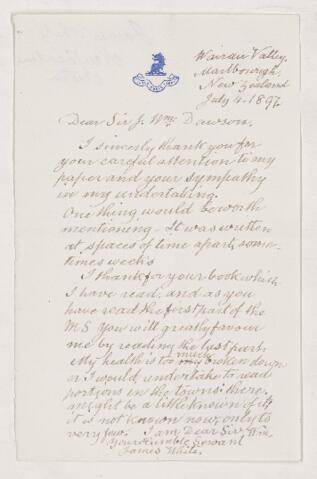 Wairau Valley.
Marlborough,
New Zealand
July 4-1897.
Dear Sir J. Wm. Dawson.
I sincerely thank you for
your careful attention to my
paper and your sympathy
in my undertaking.
One thing would be worth
mentioning - It was written
at spaces of time apart, some-
times weeks
I thank for your book which
I have read, and as you
have read the first part of the
M S you will greatly favour
me by reading the last part.
My health is too much broken down
or I would undertake to read
portions in the towns: there
might be a little known of it
it is not known now, only to
very few. I am Dear Sir Wm.
Your humble Servant
James White.